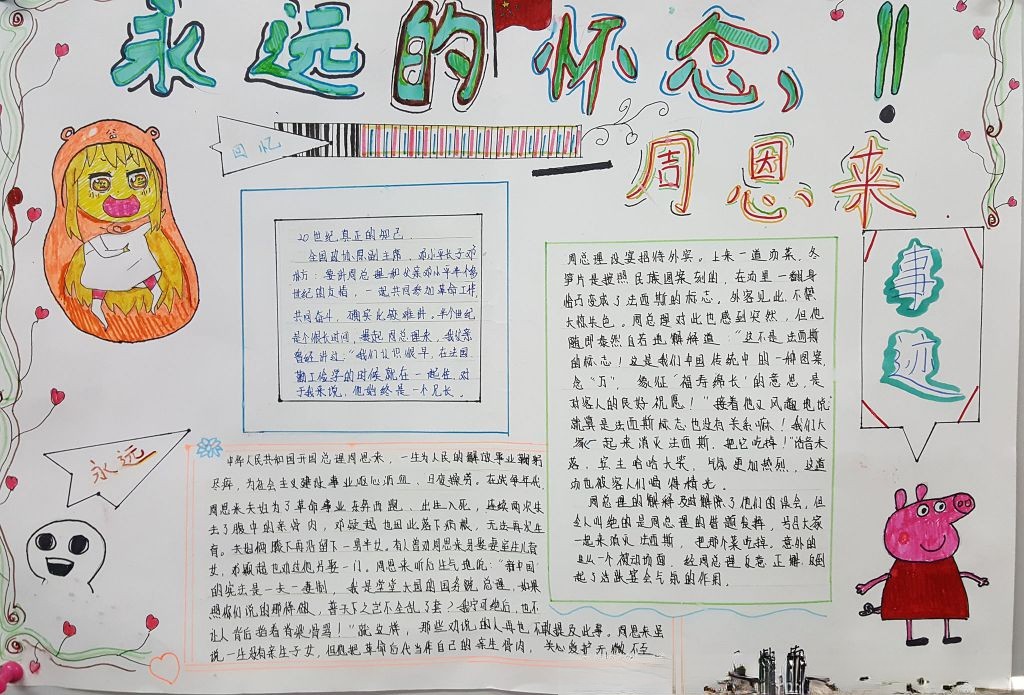 永远的怀念!!
周恩来
回忆
20世纪真正的知己
全国政协原副主席、邓小平长子邓
朴方:要讲周总理和父亲邓小平半个多
世纪的友情,一起共同参加革命工作,
共同奋斗,确实比较难讲。半个世纪
是个很长时间,提起周总理来,我父亲
曾经讲过:“我们认识很早,在法国
勤工俭学的时候就在一起住,对
于我来说,他始终是一个兄长。
周总理设宴招待外宾。上来一道汤菜,冬
笋片是按照民族图案刻的,在汤里一翻身
恰巧变成了法西斯的标志。外客见此,不禁
大惊失色。周总理对此也感到突然,但他
随即泰然自若地解释道:“这不是法西斯
的标志!这是我们中国传统中的一种图案,
念“万”,象征“福寿绵长”的意思,是
对客人的良好祝愿!”接着他又风趣地说
就算是法西斯标志也没有关系嘛!我们大
家一起来消灭法西斯,把它吃掉!”话音未
落,宾主哈哈大笑,气氛更加热烈,这道
汤也被客人们喝得精光。
周总理的解释及时解除了他们的误会,但
令人叫绝的是周总理的借题发挥,号召大家
一起来消灭法西斯,把那个菜吃掉。意外的
出一个被动场面,经周总理反意正解,反倒
起了活跃宴会气氛的作用。
事
迹
永远
中华人民共和国开国总理周恩来,一生为人民的解放事业鞠躬
尽瘁,为社会主义建设事业呕心沥血、日夜操劳。在战争年代,
周恩来夫妇为了革命事业东奔西跑、出生入死,连续两次失
去了腹中的亲骨肉,邓颖超也因此落下病根,无法再次生
育。夫妇俩膝下再没留下一男半女。有人曾劝周恩来另娶妻室生儿育
女,邓颖超也劝过他另娶一门。周恩来听后生气地说:“新中国
的宪法是一夫一妻制,我是堂堂大国的国务院总理,如果
照你们说的那样做,普天下之岂不全乱了套?我宁可绝后,也不
让人背后指着脊梁骨骂!”就这样,那些劝说的人再也不敢提及此事。周恩来虽
说一生没有亲生子女,但他把革命后代当作自己的亲生骨肉,关心爱护无微不至